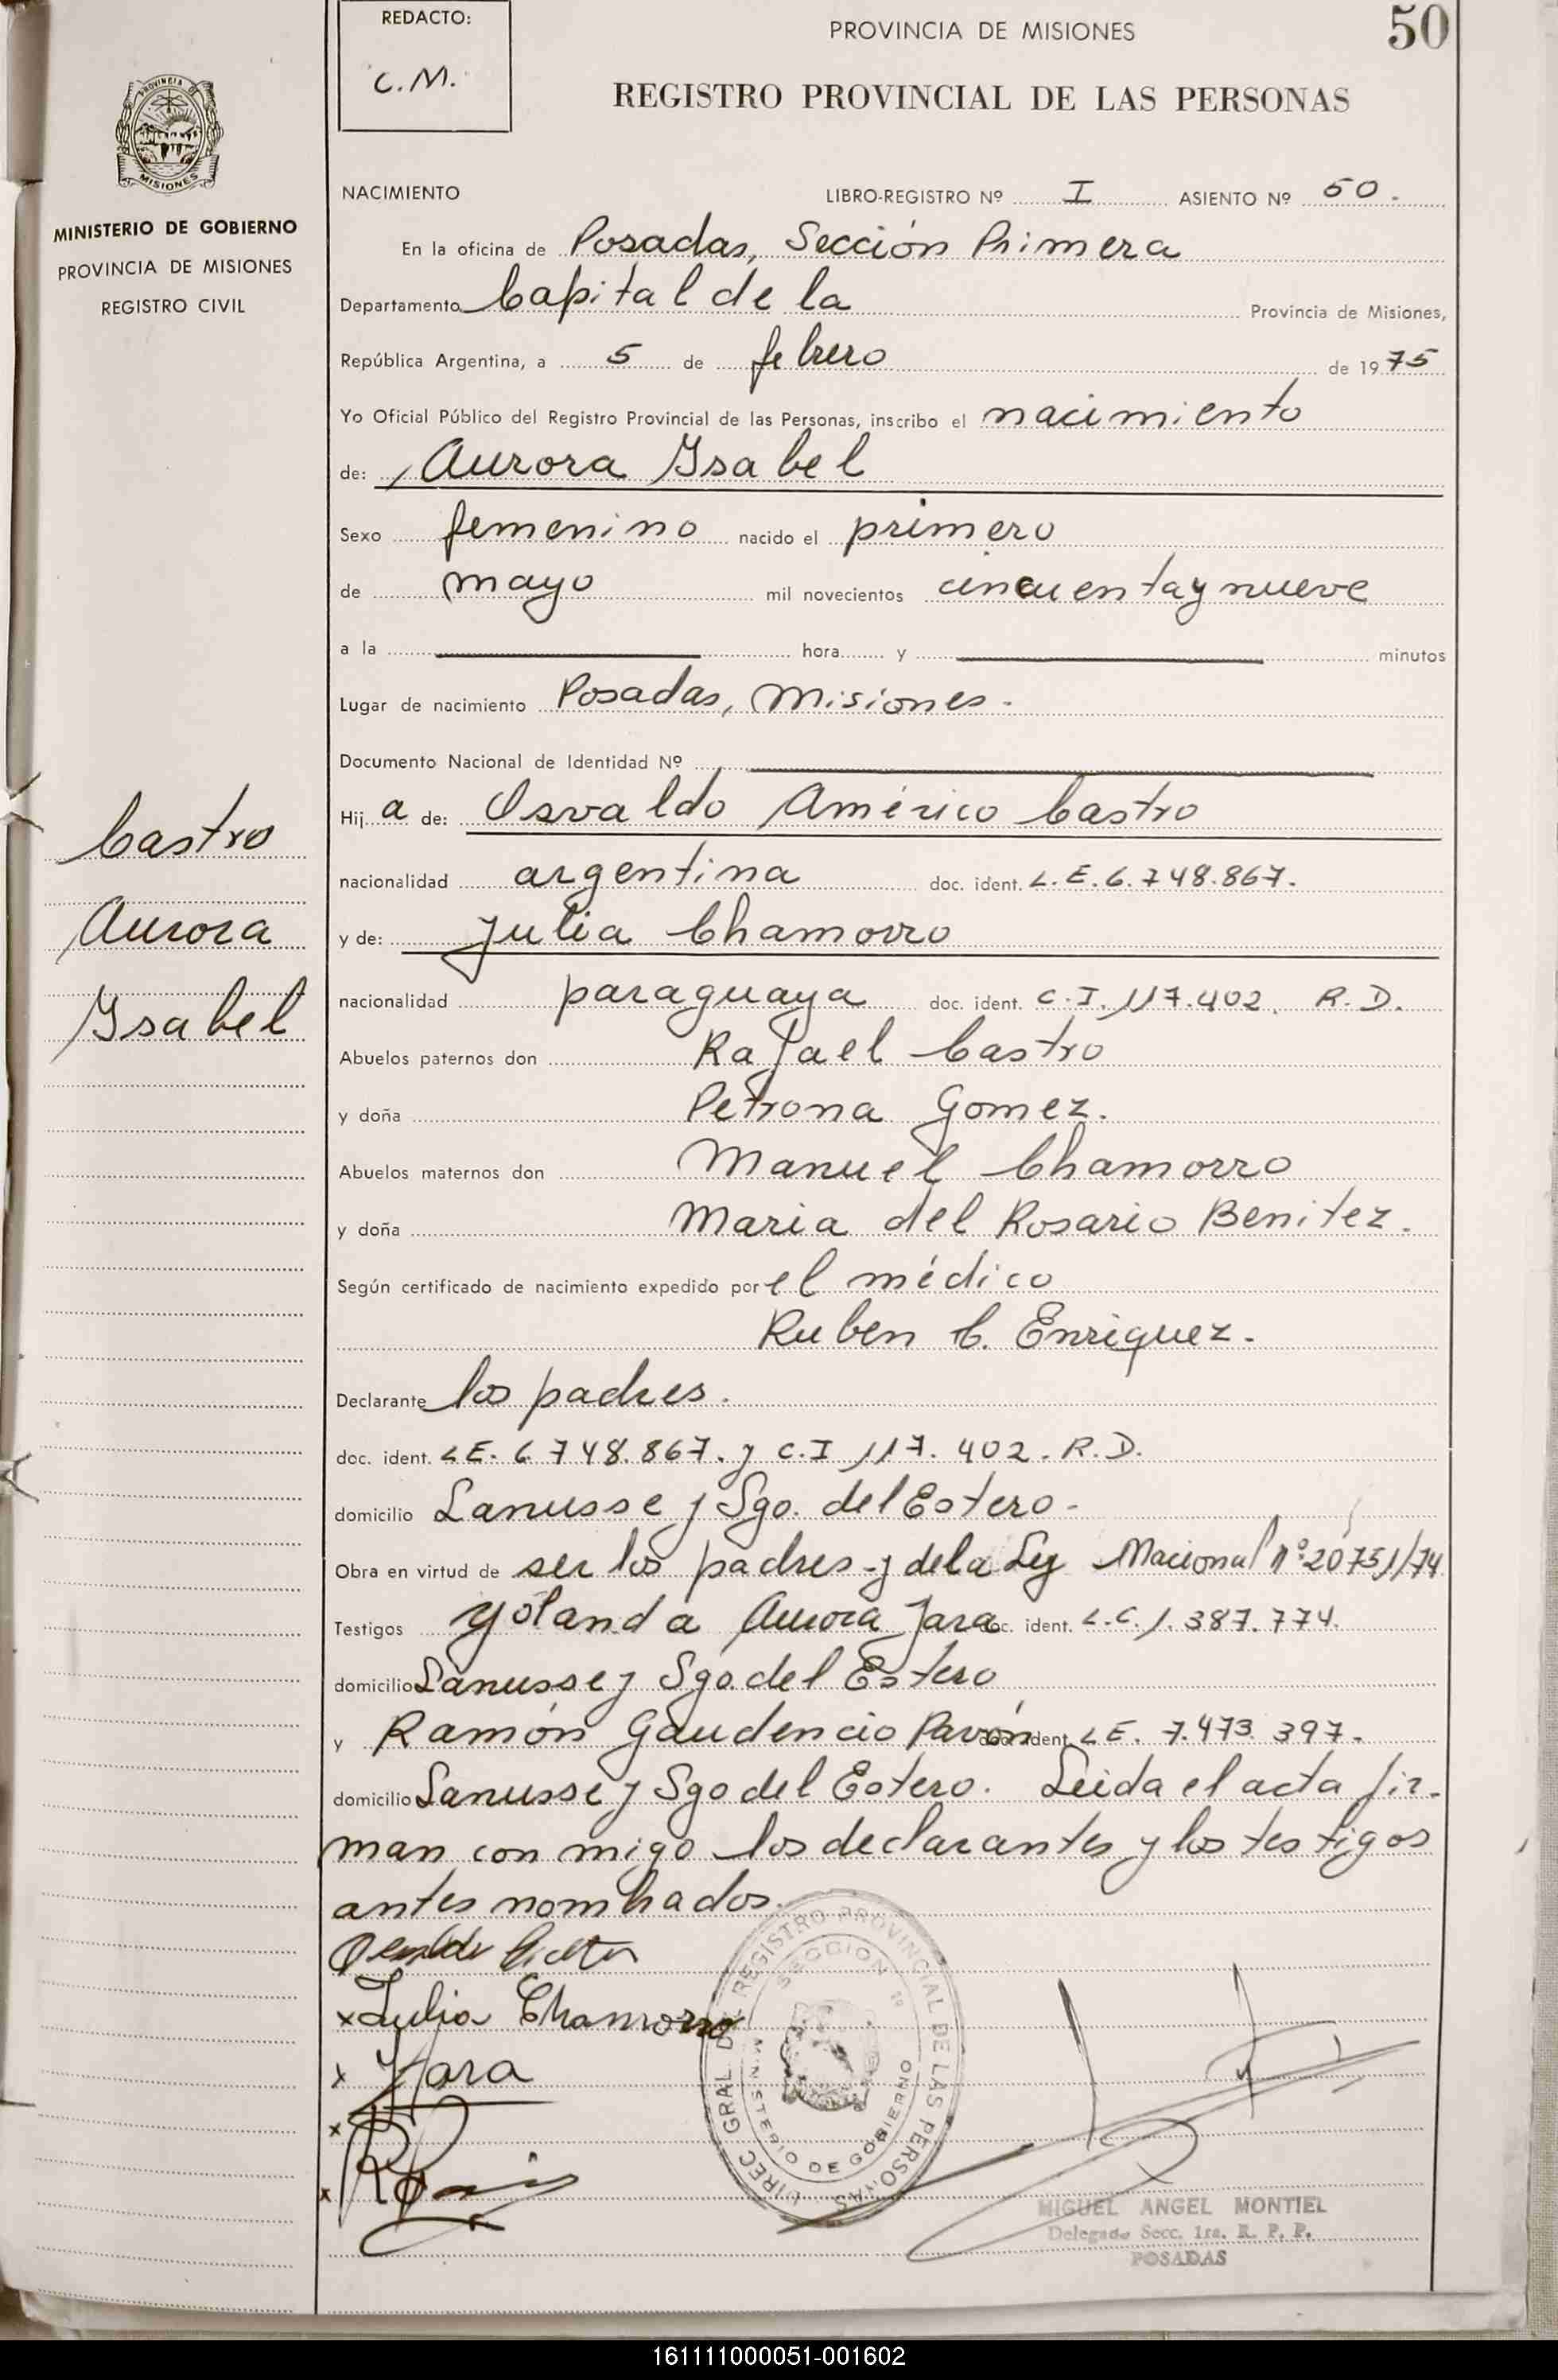 REDACTO:
C.M.
PROVINCIA DE MISIONES
50
REGISTRO PROVINCIAL DE LAS PERSONAS
PROVINCIA DE
MISIONES
MINISTERIO DE GOBIERNO
PROVINCIA DE MISIONES
REGISTRO CIVIL
NACIMIENTO LIBRO-REGISTRO Nº I ASIENTO Nº 50.
En la oficina de Posadas, Sección Primera
Departamento Capital de la Provincia de Misiones,
República Argentina, a 5 de febrero de 1975
Yo Oficial Público del Registro Provincial de las Personas, inscribo el nacimiento
de: Aurora Ysabel
Sexo femenino nacido el primero
de mayo mil novecientos cincuenta y nueve
a la hora y minutos
Lugar de nacimiento Posadas, Misiones.
Documento Nacional de Identidad Nº
Hij a de: Osvaldo Américo Castro
nacionalidad argentina doc. ident. L.E. 6.748.867.
y de: Julia Chamorro
nacionalidad paraguaya doc. ident. C.I. 117.402. R.D.
Abuelos paternos don Rafael Castro
y doña Petrona Gomez.
Abuelos maternos don Manuel Chamorro
y doña Maria del Rosario Benitez.
Según certificado de nacimiento expedido por el médico
Ruben C. Enriquez.
Declarante los padres.
doc. ident. LE. 6.748.867. y C.I 117.402. R.D.
domicilio Lanusse y Sgo. del Estero-
Obra en virtud de ser los padres y de la Ley Nacional nº 20751/74
Testigos Yolanda Aurora Jara doc. ident. L.C. 1.387.774.
domicilio Lanusse y Sgo. del Estero
y Ramón Gaudencio Pavón doc. ident. LE. 7.473.397.
domicilio Lanusse y Sgo del Estero. Leida el acta fir-
man con migo los declarantes y los testigos
antes nombrados.
x Julia Chamorro
x Jara
x
x
Castro
Aurora
Ysabel
DIREC. GRAL. DEL REGISTRO PROVINCIAL DE LAS PERSONAS
SECCION 1ª
MINISTERIO DE GOBIERNO
MIGUEL ANGEL MONTIEL
Delegado Secc. 1ra. R. P. P.
POSADAS
161111000051-001602